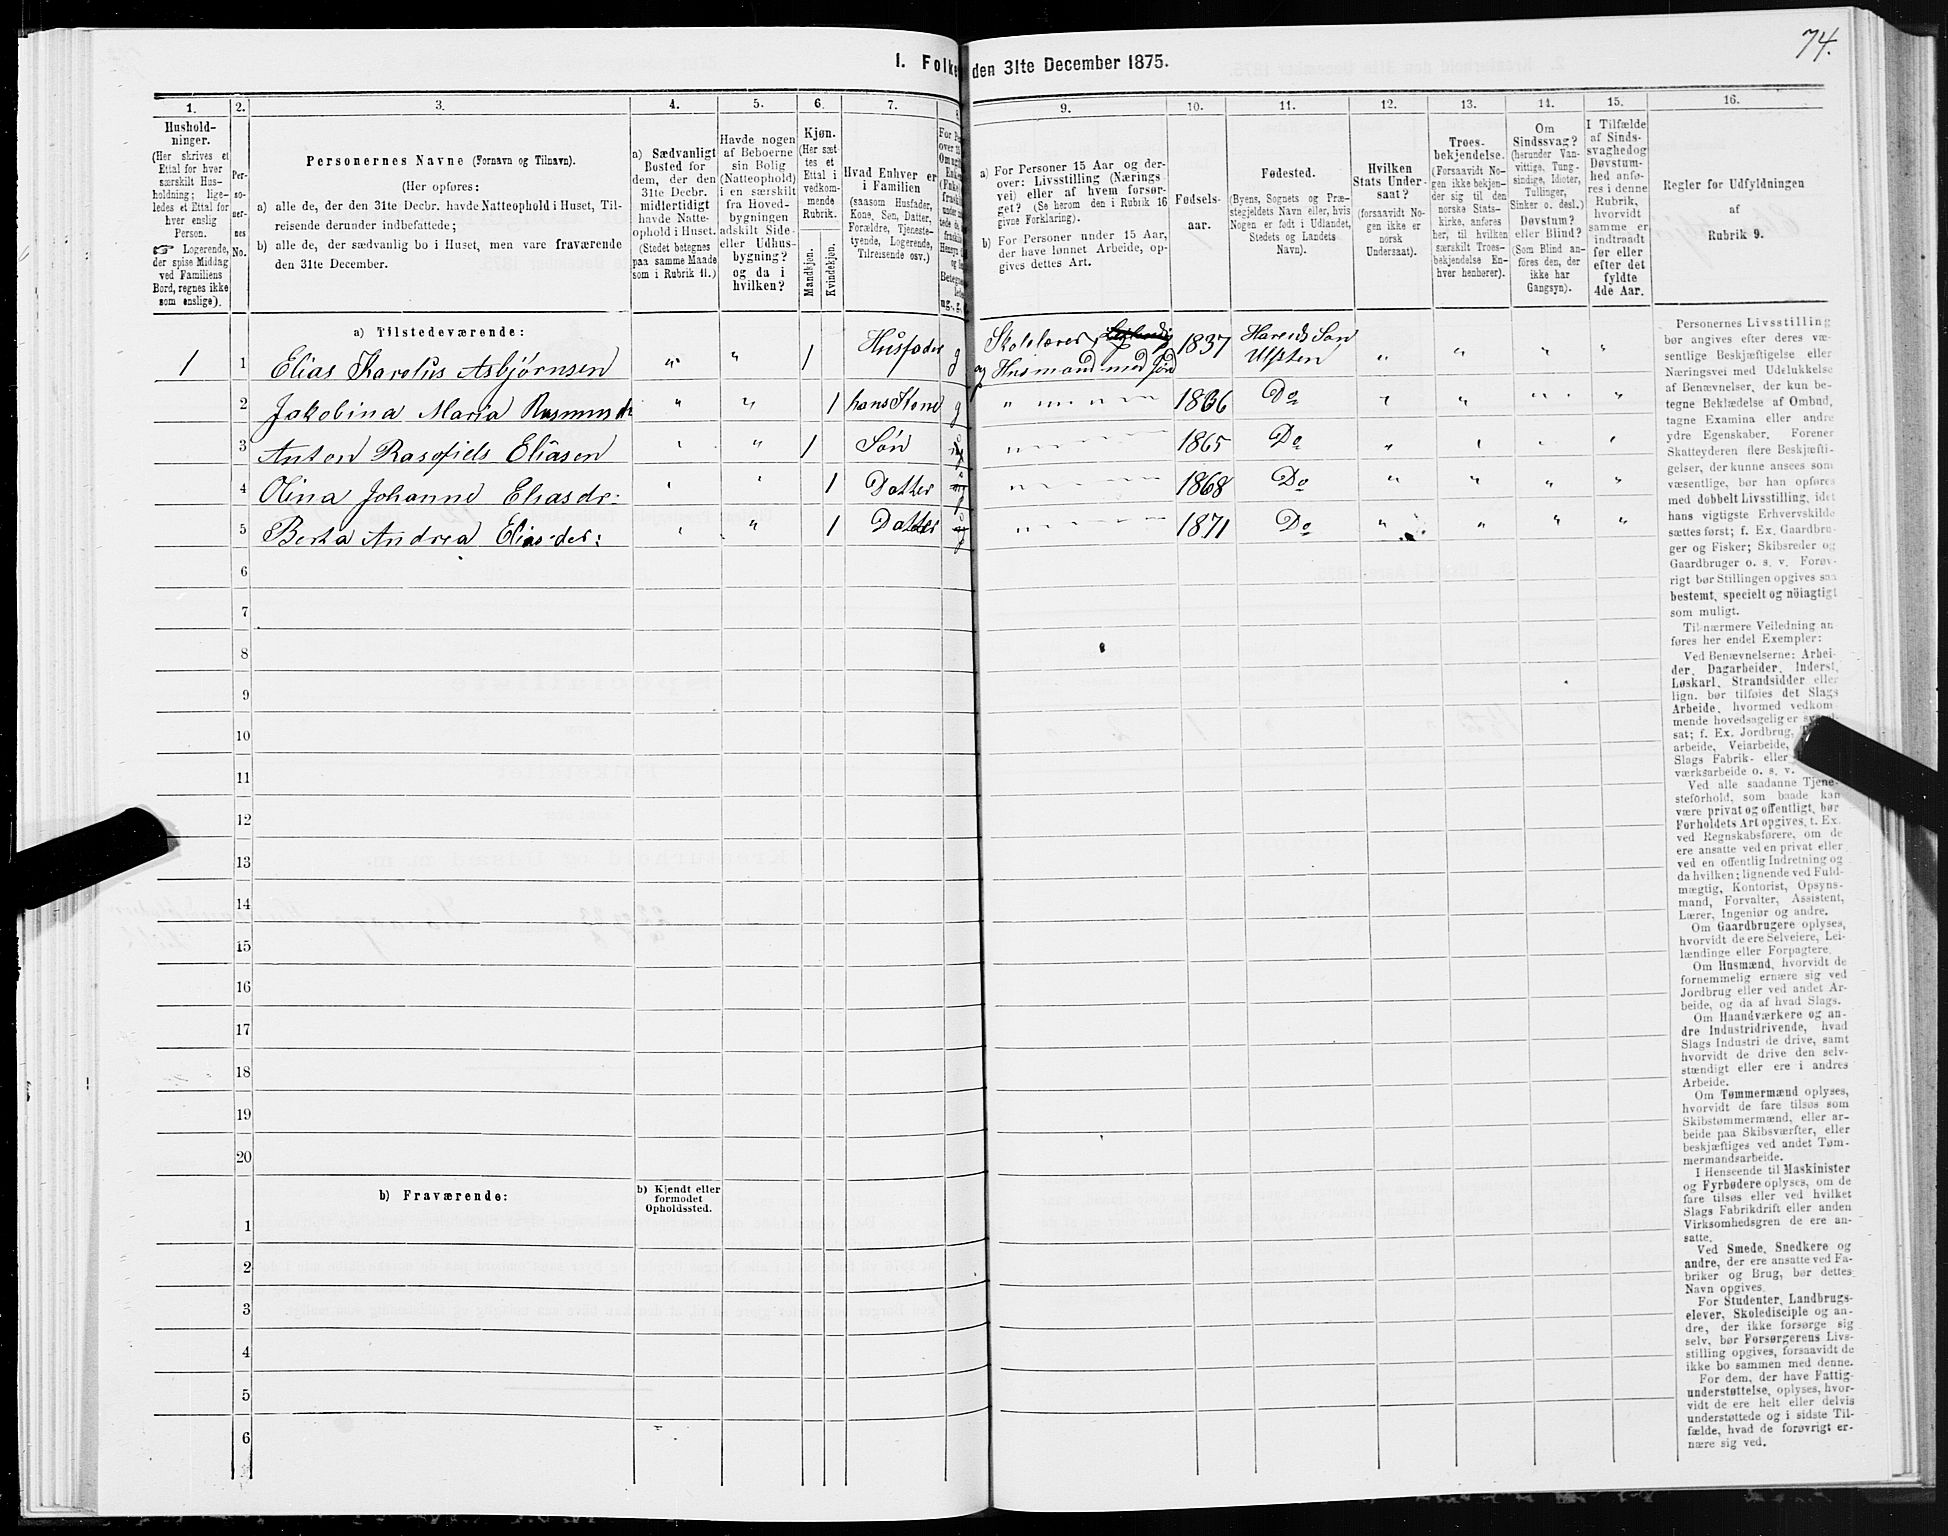 74.
I. Folke den 31te December 1875.
1.
Hushold-
ninger.
(Her skrives et
Ettal for hver
særskilt Hus-
holdning; lige-
ledes et Ettal for
hver enslig
Person.
☞ Logerende,
der spise Middag
ved Familiens
Bord, regnes ikke
som enslige).
2.
Per-
so-
ner-
nes
No.
3.
Personernes Navne (Fornavn og Tilnavn).
(Her opføres:
a) alle de, der den 31te Decbr. havde Natteophold i Huset, Til-
reisende derunder indbefattede;
b) alle de, der sædvanlig bo i Huset, men vare fraværende
den 31te December.
4.
a) Sædvanligt
Bosted for
dem, der den
31te Decbr.
midlertidigt
havde Natte-
ophold i Huset.
(Stedet betegnes
paa samme Maade
som i Rubrik 11.)
5.
Havde nogen
af Beboerne
sin Bolig
(Natteophold)
i en særskilt
fra Hoved-
bygningen
adskilt Side-
eller Udhus-
bygning?
og da i
hvilken?
6.
Kjøn.
(Her sæt-
tes et
Ettal i
vedkom-
mende
Rubrik.
Mandkjøn.
Kvindekjøn.
7.
Hvad Enhver er
i Familien
(saasom Husfader,
Kone, Søn, Datter,
Forældre, Tjeneste-
tyende, Logerende,
Tilreisende osv.)
9.
a) For Personer 15 Aar og der-
over: Livsstilling (Nærings-
vei) eller af hvem forsør-
get? (Se herom den i Rubrik 16
givne Forklaring).
b) For Personer under 15 Aar,
der have lønnet Arbeide, op-
gives dettes Art.
10.
Fødsels-
aar.
11.
Fødested.
(Byens, Sognets og Præ-
stegjeldets Navn eller, hvis
Nogen er født i Udlandet,
Stedets og Landets
Navn).
12.
Hvilken
Stats Under-
saat?
(forsaavidt No-
gen ikke er
norsk
Undersaat).
13.
Troes-
bekjendelse.
(Forsaavidt No-
gen ikke bekjen-
der sig til den
norske Stats-
kirke, anføres
her, til hvilken
særskilt Troes-
bekjendelse En-
hver henhører).
14.
Om
Sindssvag?
(herunder Van-
vittige, Tung-
sindige, Idioter,
Tullinger,
Sinker o. desl.)
Døvstum?
eller Blind?
(Som Blind an-
føres den, der
ikke har
Gangsyn).
15.
I Tilfælde
af Sinds-
svaghed og
Døvstum-
hed anfø-
res i denne
Rubrik,
hvorvidt
samme er
indtraadt
før eller
efter det
fyldte
4de Aar.
16.
Regler for Udfyldningen
af
Rubrik 9.
a) Tilstedeværende:
1 1 Elias Karolus Asbjørnsen " " 1 Husfader g Skolelærer og Husmand med Jord 1837 Harends Søn Ulsten " " " "
2 Jakobina Maria Rasmusdr " " 1 hans Kone g " " " " " 1836 Do " " " "
3 Anton Rasofiels Eliasen " " 1 Søn " " " " 1865 Do " " " "
4 Olina Johanne Eliasdr: " " 1 Datter " " " " 1868 Do " " " "
5 Berta Andrea Eliasder: " " 1 Datter " " " " 1871 Do " " " "
6
7
8
9
10
11
12
13
14
15
16
17
18
19
20
b) Fraværende:
b) Kjendt eller
formodet
Opholdssted.
1
2
3
4
5
6
Personernes Livsstilling
bør angives efter deres væ-
sentlige Beskjæftigelse eller
Næringsvei med Udelukkelse
af Benævnelser, der kun be-
tegne Beklædelse af Ombud,
tagne Examina eller andre
ydre Egenskaber. Forener
Skatteyderen flere Beskjæfti-
gelser, der kunne ansees som
væsentlige, bør han opføres
med dobbelt Livsstilling, idet
hans vigtigste Erhvervskilde
sættes først; f. Ex. Gaardbru-
ger og Fisker; Skibsreder og
Gaardbruger o. s. v. Forøv-
rigt bør Stillingen opgives saa
bestemt, specielt og nöiagtigt
som muligt.
Til nærmere Veiledning an
føres her endel Exempler:
Ved Benævnelserne: Arbei-
der, Dagarbeider, Inderst,
Løskarl, Strandsidder eller
lign. bør tilføies det Slags
Arbeide, hvormed vedkom-
mende hovedsagelig er syssel
sat; f. Ex. Jordbrug,
arbeide, Veiarbeide,
Slags Fabrik- eller
værksarbeide o. s. v.
Ved alle saadanne Tjene-
steforhold, som baade kan
være privat og offentligt, bør
Forholdets Art opgives, t. Ex.
ved Regnskabsførere, om de
ere ansatte ved en privat eller
ved en offentlig Indretning og
da hvilken; lignende ved Fuld-
mægtig, Kontorist, Opsyns-
mand, Forvalter, Assistent,
Lærer, Ingeniør og andre.
Om Gaardbrugere oplyses,
hvorvidt de ere Selveiere, Lei-
lændinge eller Forpagtere.
Om Husmænd, hvorvidt de
fornemmelig ernære sig ved
Jordbrug eller ved andet Ar-
beide, og da af hvad Slags.
Om Haandværkere og an-
dre Industridrivende, hvad
Slags Industri de drive, samt
hvorvidt de drive den selv-
stændigt eller ere i andres
Arbeide.
Om Tømmermænd oplyses,
hvorvidt de fare tilsøs som
Skibstømmermænd, eller ar-
beide paa Skibsværfter, eller
beskjæftiges ved andet Tøm-
mermandsarbeide.
I Henseende til Maskinister
og Fyrbødere oplyses, om de
fare tilsøs eller ved hvilket
Slags Fabrikdrift eller anden
Virksomhedsgren de ere an-
satte.
Ved Smede, Snedkere og
andre, der ere ansatte ved Fa-
briker og Brug, bør dettes
Navn opgives.
For Studenter, Landbrugs-
elever, Skoledisciple og an-
dre, der ikke forsørge sig
selv, bør Forsørgerens Livs-
stilling opgives, forsaavidt de
ikke bo sammen med denne.
For dem, der have Fattig-
understøttelse, oplyses, hvor-
vidt de ere helt eller delvis
understøttede og i sidste Til-
fælde, hvad de forøvrigt er-
nære sig ved.